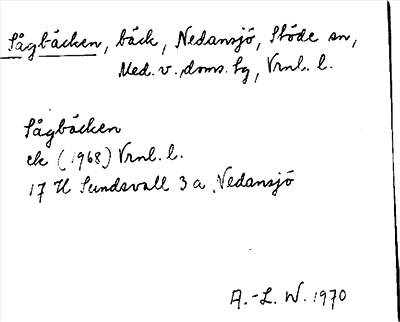 Sågbäcken, bäck, Nedansjö, Stöde sn,
Med. v. doms. tg, Vrnl. l.
Sågbäcken
ek (1968) Vrnl. l.
17 H Sundsvall 3 a, Nedansjö
A.-L. W. 1970